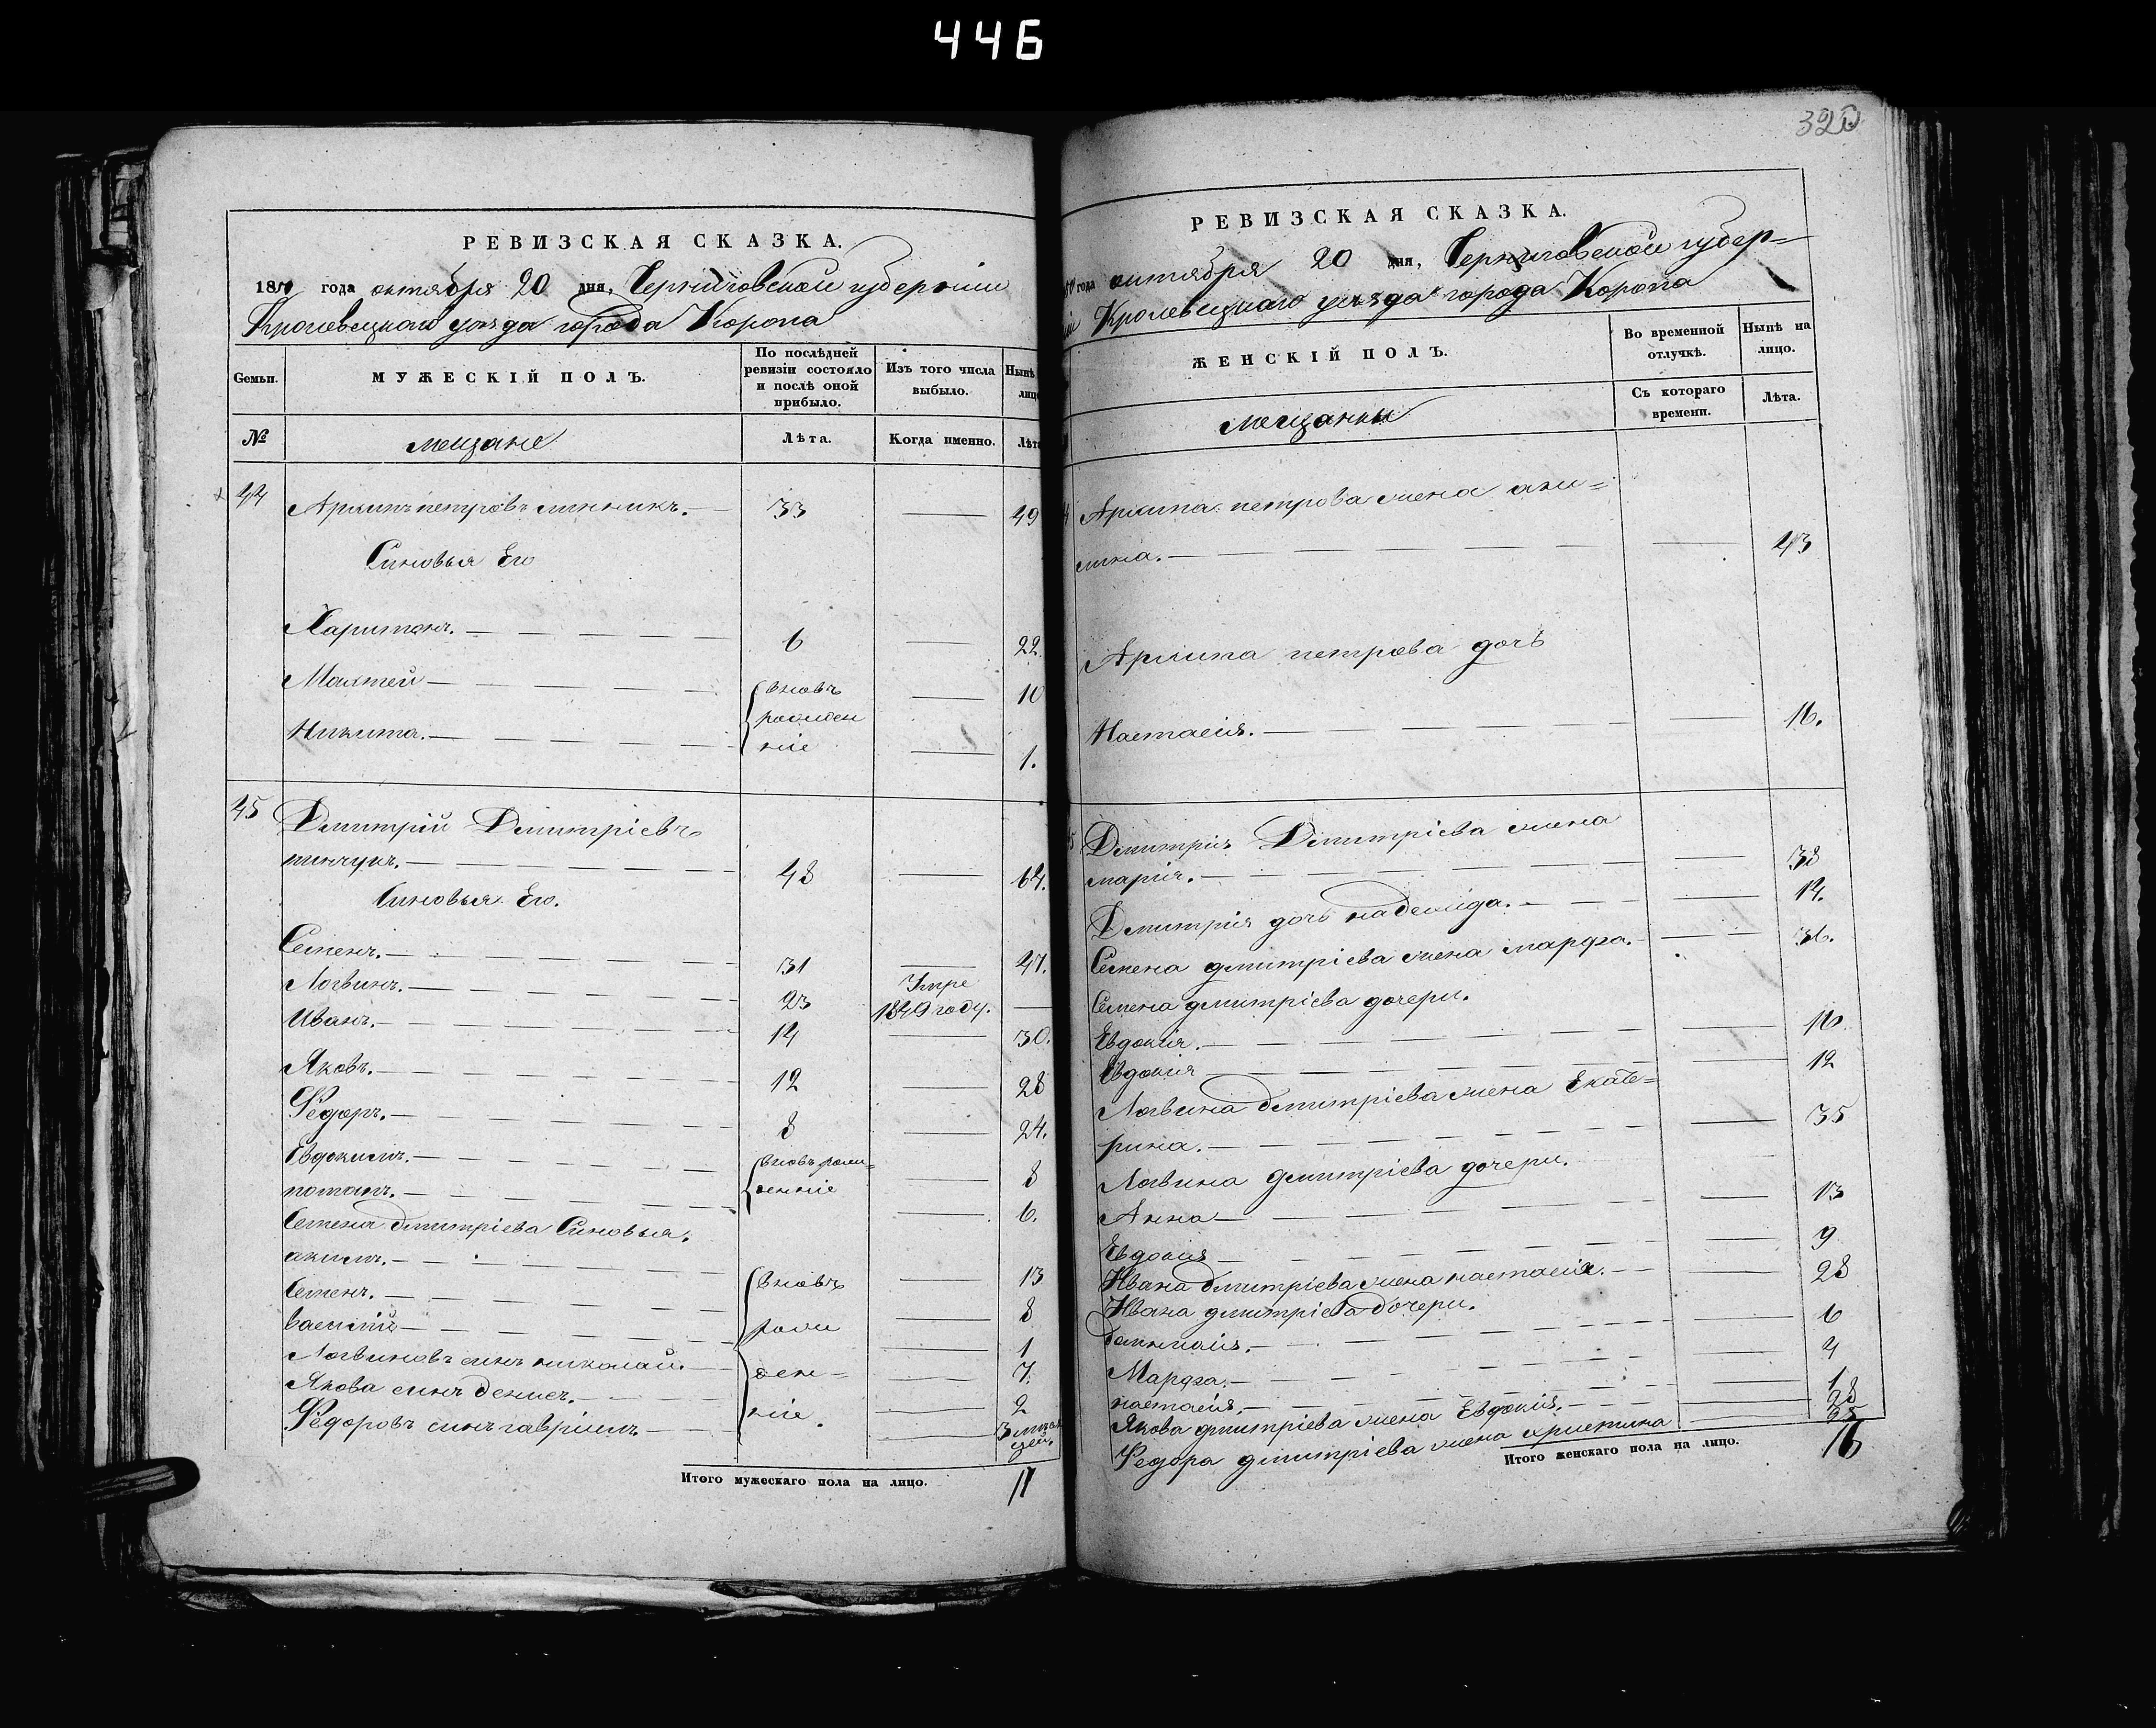 446
320
РЕВИЗСКАЯ СКАЗКА.
1850 года октября 20 дня, Черниговской губерніи
Кролевецкаго уезда города Коропа
Семьи.
МУЖЕСКІЙ ПОЛЪ.
По послѣдней ревизіи состояло и послѣ оной прибыло.
Изъ того числа выбыло.
Нынѣ
лицо
№
мещане
Лѣта.
Когда именно.
Лѣта
44 петровъ 33 — 49
Синовья Его
Харитонъ. — 6 — 22.
— вновь — 10
Никита. — рожден ніе — 1.
45 Дмитрій Дмитріевъ
пинчукъ. — 48 — 64.
Синовья Его.
Семенъ. — 31 — 47.
Логвинъ. — 23 Умре 1849 году. —
Иванъ. — 14 — 30.
Яковъ. — 12 — 28
Федоръ. — 8 — 24.
Евдокимъ. — вновь рож= — 8
потапъ. — денніе — 6.
Семена дмитріева Синовья.
акимъ. — вновь — 13
Семенъ. — — 8
василій — рож — 1
Логвиновъ синъ николай. — ден= — 7.
Якова синъ денисъ. — — 2
Федоровъ синъ гавріилъ — ніе. — 3
Итого мужескаго пола на лицо. 
РЕВИЗСКАЯ СКАЗКА.
года октября 20 дня, Черниговской губер=
Кролевецкаго уезда города Коропа
ЖЕНСКІЙ ПОЛЪ.
Во временной отлучкѣ.
Нынѣ на лицо.
мещанки
Съ котораго времени.
Лѣта.
петрова жена аки=
лина. — — 43
петрова дочь
Настасія. — — 16.
Дмитрія Дмитріева жена
марія. — — 38
Дмитрія дочь надежда. — — 14.
Семена дмитріева жена марфа. — 36.
Семена дмитріева дочери.
Евдокія. — — 16
Евдокія — — 12
Логвина дмитріева жена Екате=
рина. — — 35
Логвина дмитріева дочери.
Анна — — 13
Евдокія — — 9
Ивана дмитріева жена настасія. — — 28
Ивана дмитріева дочери.
— — 6
Марфа. — — 4
настасія. — — 1
Якова дмитріева жена Евдокія. — 28
Федора дмитріева жена христина — 25
Итого женскаго пола на лицо. 16